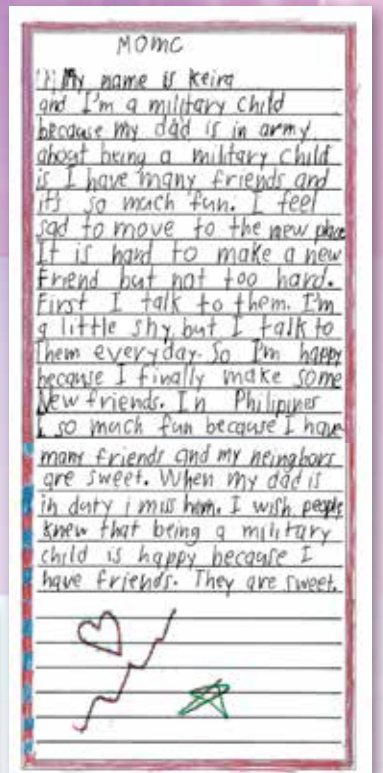 MOMC
Hi My name is Keira
and I'm a military child
because my dad is in army.
about being a military child
is I have many friends and
it's so much fun. I feel
sad to move to the new place
It is hard to make a new
friend but not too hard.
First I talk to them. I'm
a little shy but I talk to
them everyday. So I'm happy
because I finally make some
New friends. In Philipines
i so much fun because I have
many friends and my neingbors
are sweet. When my dad is
in duty i miss him. I wish people
knew that being a military
child is happy because I
have friends. They are sweet.